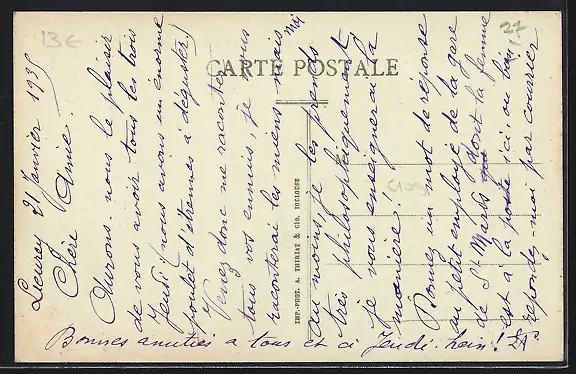 13 E
27
CARTE POSTALE
IMP.-PHOT. A. THIRIAT & Cie, TOULOUSE
Lieurey 21 Janvier 1935
Chère Amie.
Aurons-nous le plaisir
de vous avoir tous les trois
Jeudi (nous avons un énorme
poulet d'étrennes à déguster)
Venez donc me raconter
tous vos ennuis, je vous
raconterai les miens mais
moi
au moins je les prends
très philosophiquement
je vous enseignerai la
manière!
Donnez un mot de réponse
au petit employé de la gare
de St Mards dont la femme
est à la poste ici, ou bien
répondez-moi par courrier
Bonnes amitiés à tous et à Jeudi. hein!